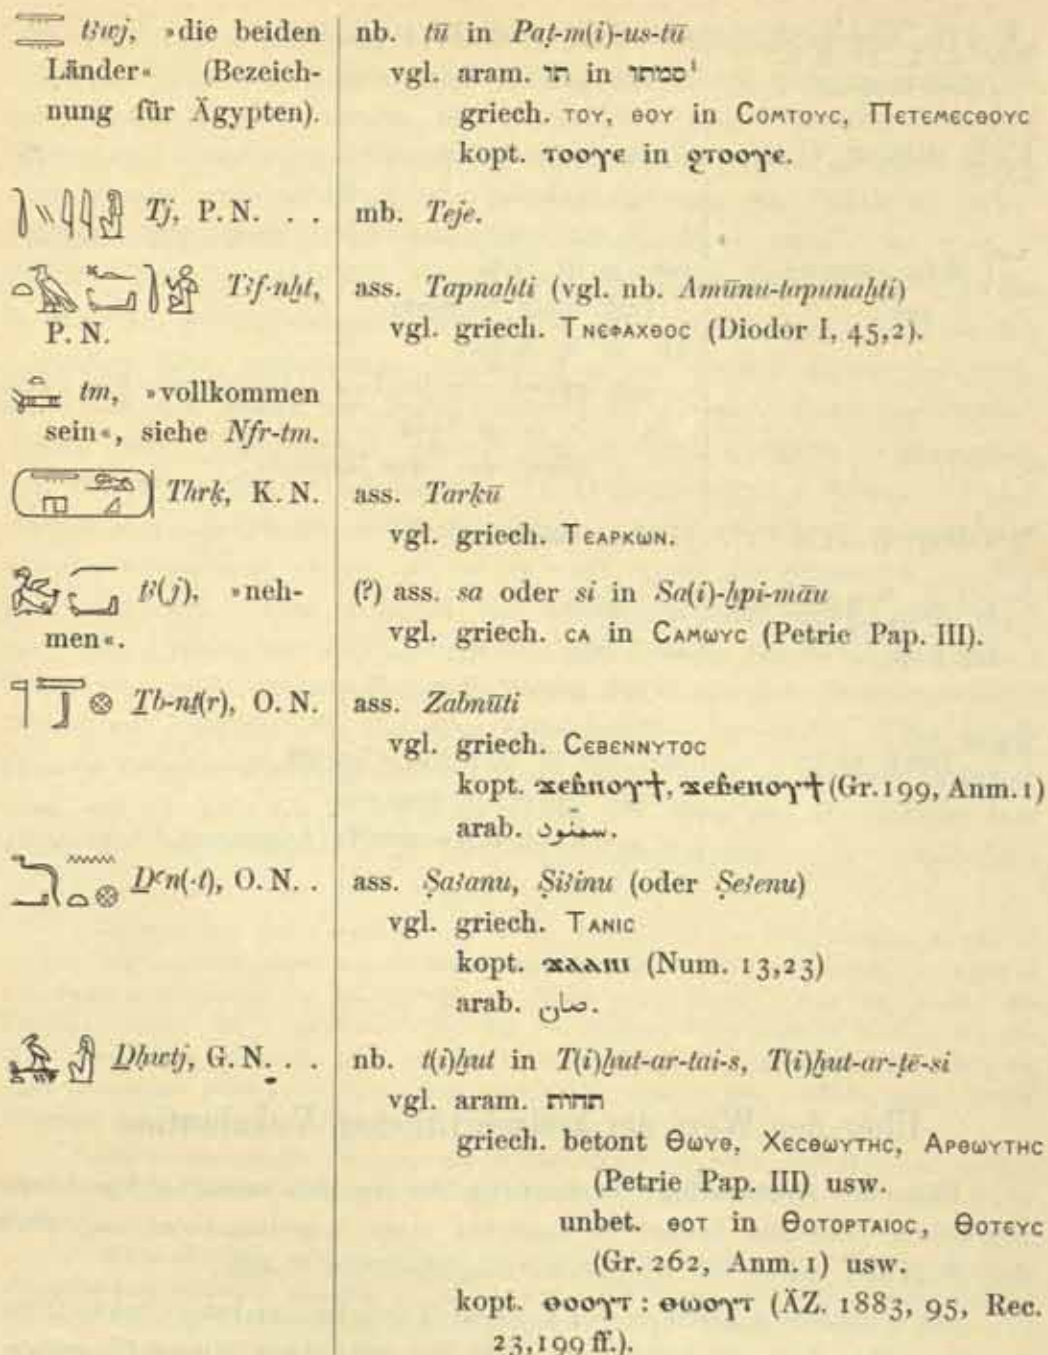 tꜣwj, »die beiden
Länder« (Bezeich-
nung für Ägypten).
nb. tū in Paṭ-m(i)-us-tū
vgl. aram. תו in סמתו¹
griech. ΤΟΥ, ΘΟΥ in ϹΟΜΤΟΥϹ, ΠΕΤΕΜΕϹΘΟΥϹ
kopt. ⲧⲟⲟⲩⲉ in ϩⲧⲟⲟⲩⲉ.
Tj, P. N. . .
mb. Teje.
Tꜣf-nḫt,
P. N.
ass. Tapnaḫti (vgl. nb. Amūnu-tapunaḫti)
vgl. griech. ΤΝΕΦΑΧΘΟϹ (Diodor I, 45,2).
tm, »vollkommen
sein«, siehe Nfr-tm.
Thrḳ, K. N.
ass. Tarḳū
vgl. griech. ΤΕΑΡΚΩΝ.
ṯꜣ(j), »neh-
men«.
(?) ass. sa oder si in Sa(i)-ḫpi-māu
vgl. griech. ϹΑ in ϹΑΜΩΥϹ (Petrie Pap. III).
Ṯb-nṯ(r), O. N.
ass. Zabnūti
vgl. griech. ϹΕΒΕΝΝΥΤΟϹ
kopt. ϫⲉⲃⲛⲟⲩϯ, ϫⲉⲃⲉⲛⲟⲩϯ (Gr. 199, Anm. 1)
arab. سمنّود.
Ḏꜥn(·t), O. N. .
ass. Ṣaꜣanu, Ṣiꜣinu (oder Ṣeꜣenu)
vgl. griech. ΤΑΝΙϹ
kopt. ϫⲁⲁⲛⲓ (Num. 13,23)
arab. صان.
Ḏḥwtj, G. N. . .
nb. t(i)ḫut in T(i)ḫut-ar-tai-s, T(i)ḫut-ar-ṭē-si
vgl. aram. תחות
griech. betont ΘΩΥΘ, ΧΕϹΘΩΥΤΗϹ, ΑΡΘΩΥΤΗϹ
(Petrie Pap. III) usw.
unbet. ΘΟΤ in ΘΟΤΟΡΤΑΙΟϹ, ΘΟΤΕΥϹ
(Gr. 262, Anm. 1) usw.
kopt. ⲑⲟⲟⲩⲧ : ⲑⲱⲟⲩⲧ (ÄZ. 1883, 95, Rec.
23,199 ff.).